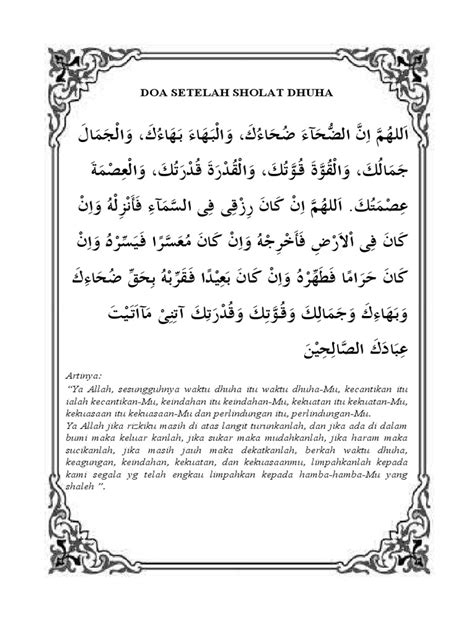 DOA SETELAH SHOLAT DHUHA
اَللهُمَّ اِنَّ الضُّحَآءَ ضُحَاءُكَ، وَالْبَهَاءَ بَهَاءُكَ، وَالْجَمَالَ
جَمَالُكَ، وَالْقُوَّةَ قُوَّتُكَ، وَالْقُدْرَةَ قُدْرَتُكَ، وَالْعِصْمَةَ
عِصْمَتُكَ. اَللهُمَّ اِنْ كَانَ رِزْقِى فِى السَّمَآءِ فَأَنْزِلْهُ وَاِنْ
كَانَ فِى اْلاَرْضِ فَأَخْرِجْهُ وَاِنْ كَانَ مُعَسَّرًا فَيَسِّرْهُ وَاِنْ
كَانَ حَرَامًا فَطَهِّرْهُ وَاِنْ كَانَ بَعِيْدًا فَقَرِّبْهُ بِحَقِّ ضُحَاءِكَ
وَبَهَاءِكَ وَجَمَالِكَ وَقُوَّتِكَ وَقُدْرَتِكَ آتِنِىْ مَآاَتَيْتَ
عِبَادَكَ الصَّالِحِيْنَ
Artinya:
“Ya Allah, sesungguhnya waktu dhuha itu waktu dhuha-Mu, kecantikan itu
ialah kecantikan-Mu, keindahan itu keindahan-Mu, kekuatan itu kekuatan-Mu,
kekuasaan itu kekuasaan-Mu dan perlindungan itu, perlindungan-Mu.
Ya Allah jika rizkiku masih di atas langit turunkanlah, dan jika ada di dalam
bumi maka keluar kanlah, jika sukar maka mudahkanlah, jika haram maka
sucikanlah, jika masih jauh maka dekatkanlah, berkah waktu dhuha,
keagungan, keindahan, kekuatan, dan kekuasaanmu, limpahkanlah kepada
kami segala yg telah engkau limpahkan kepada hamba-hamba-Mu yang
shaleh ”.